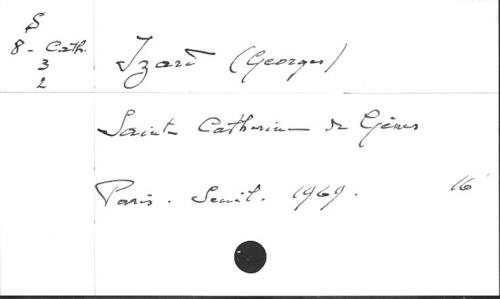 S
8 - Cath.
3
2
Izard (Georges)
Sainte Catherine de Gênes
Paris. Seuil. 1969. 16